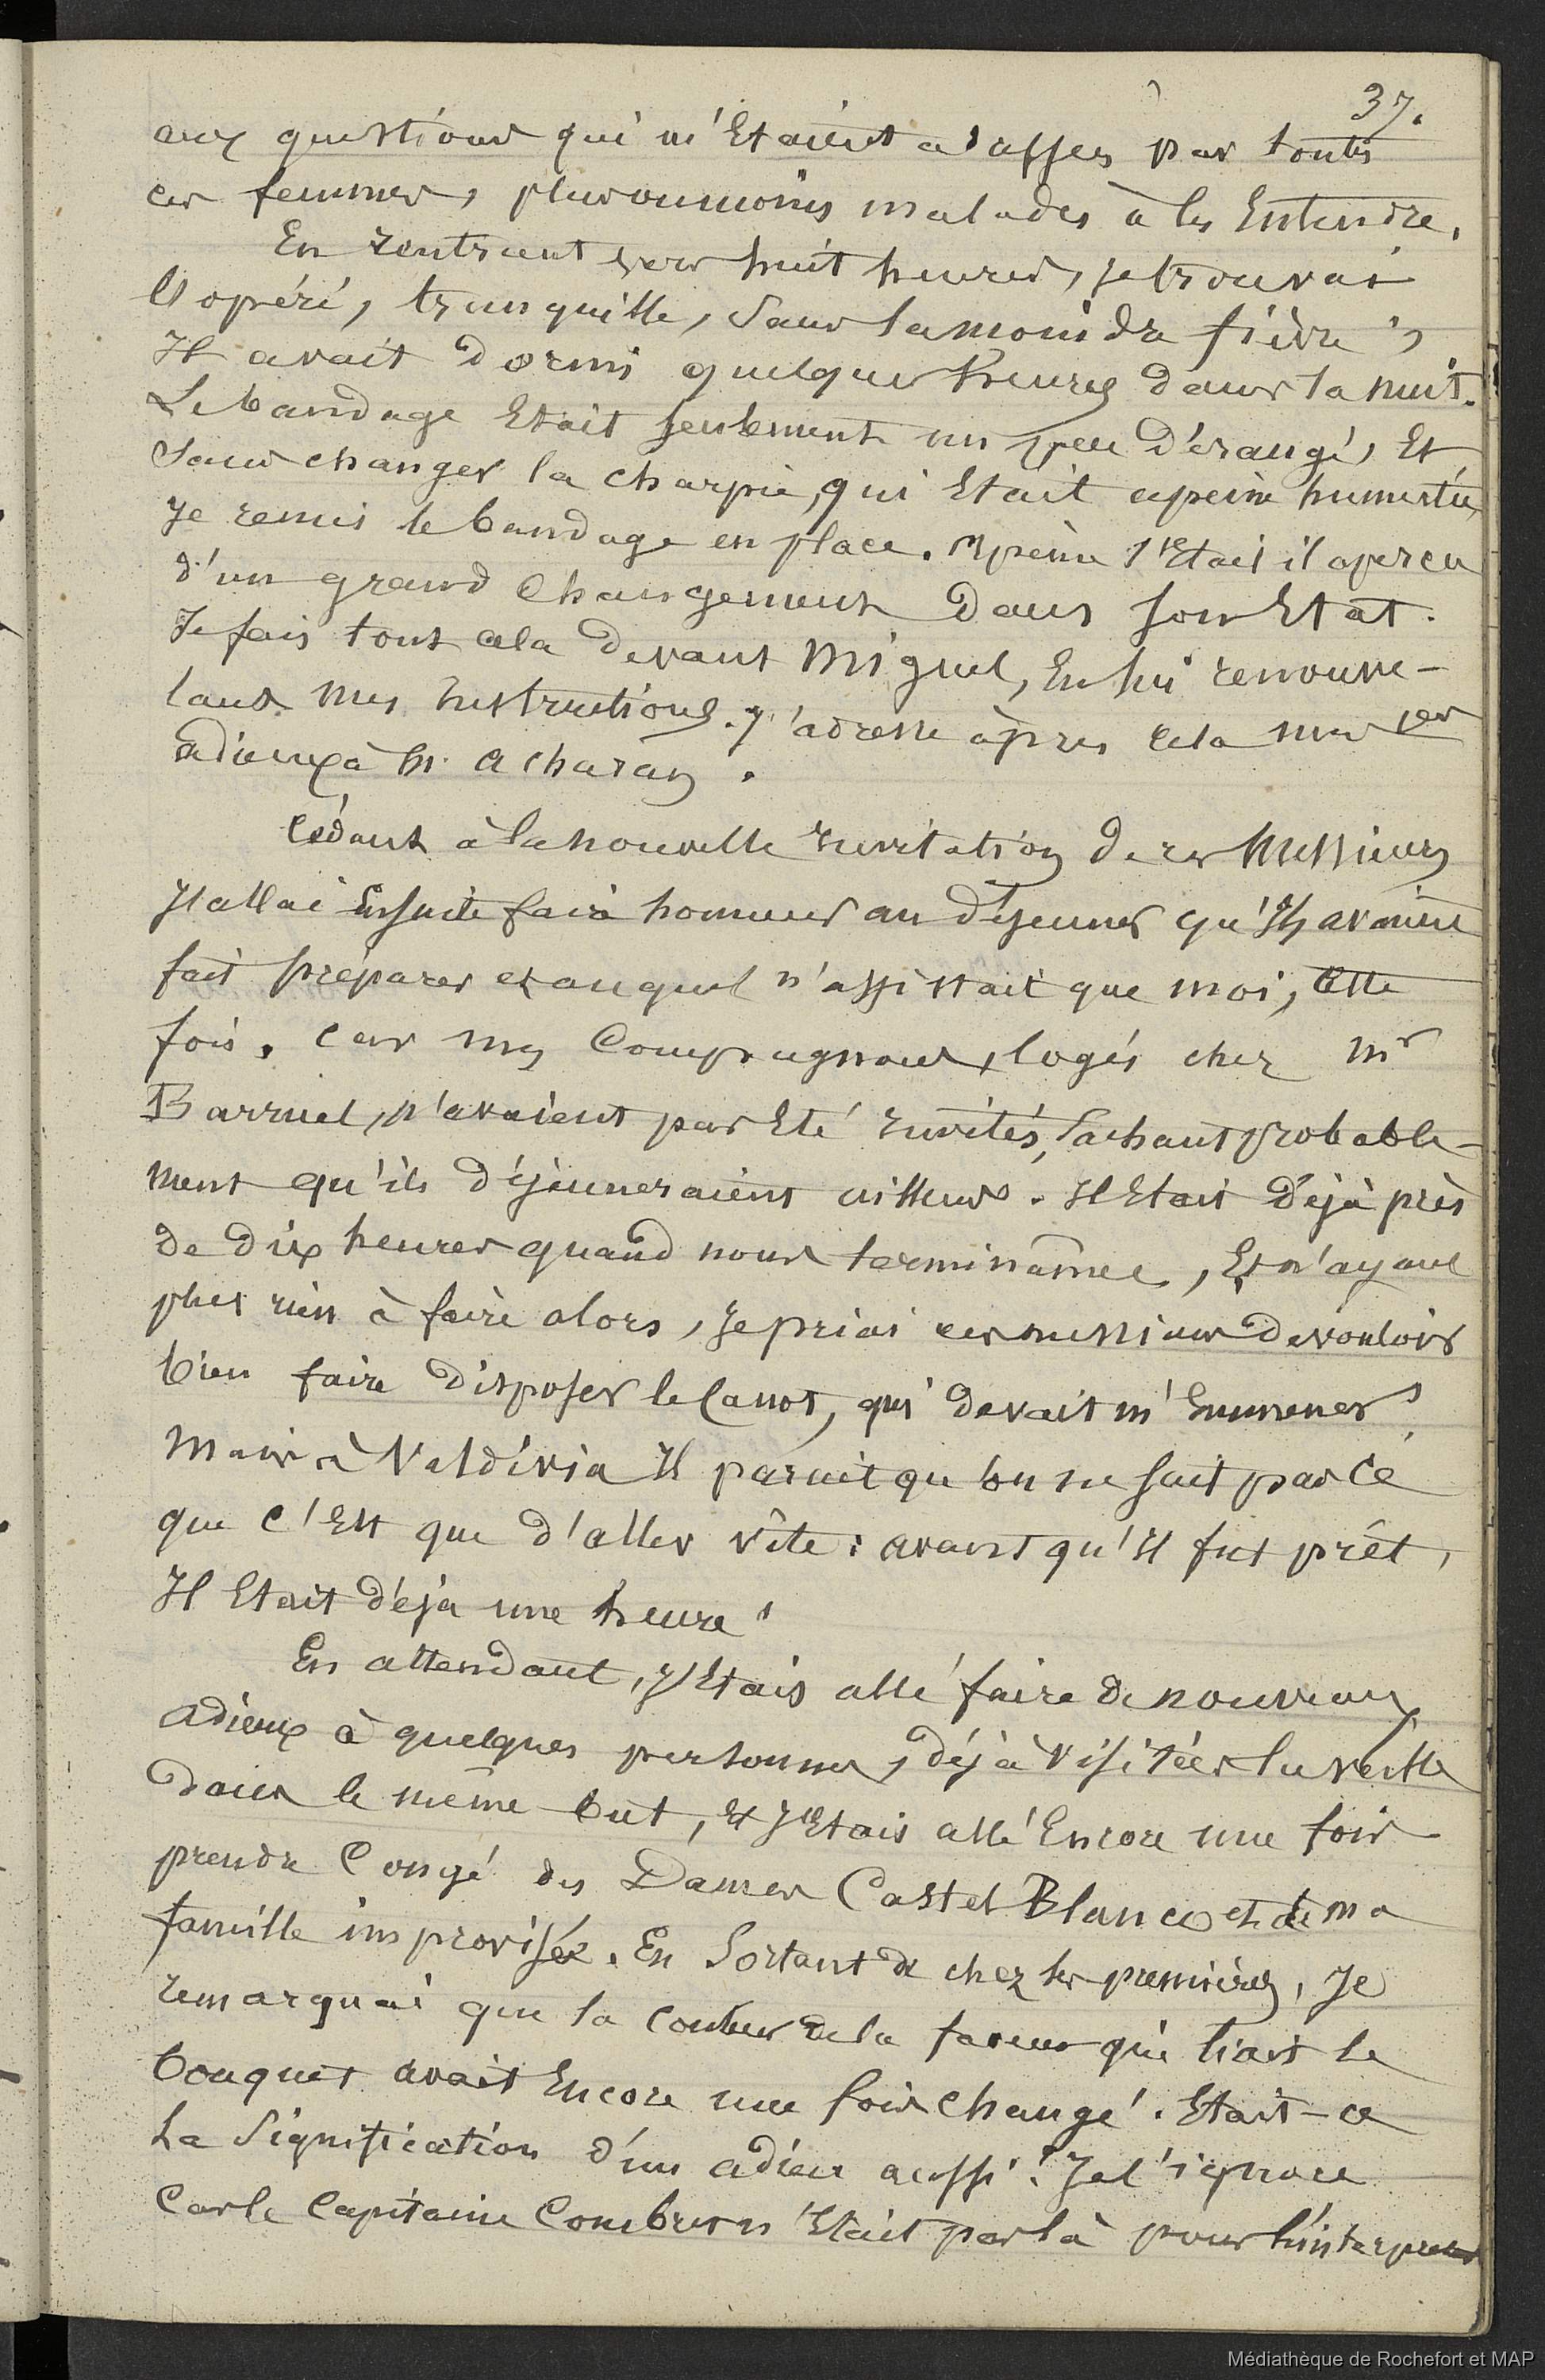 37.
aux questions qui m'Etaient adressées par toutes
ces femmes, plus ou moins malades à les Entendre.
En rentrant vers huit heures, je trouvai
l'opéré, tranquille, Sans la moindre fièvre,
Il avait dormi quelques heures dans la nuit.
Le bandage Etait seulement un peu d'érangé, Et
Sans changer la charpie, qui Etait a peine humectée,
Je remis le bandage en place. A peine s'Etait il aperçu
d'un grand Changement dans son Etat.
Je fais tout cela devant Miguel, En lui renouve-
lant mes instructions. J'adresse après cela mes
adieux à M. Acharan.
Cédant à la nouvelle invitation de ces Messieurs
J'allai Ensuite faire honneur au déjeuner qu'Ils avaient
fait préparer et auquel n'assistait que moi, Cette
fois. Car mes Compagnons, logés chez Mr
Barruel, n'avaient pas Eté invités, Sachant probable-
ment qu'ils déjeuneraient ailleurs. Il Etait déjà près
de dix heures quand nous terminâmes, Et n'ayant
plus rien à faire alors, Je priai ces messieurs de vouloir
bien faire disposer le Canot, qui devait m'Emmener,
Mais à Valdivia Il parait qu'on ne sait pas Ce
que C'Est que d'aller vite: avant qu'Il fut prêt,
Il Etait déjà une heure!
En attendant, J'Etais allé faire de nouveaux
adieux à quelques personnes, déjà visitées la veille
dans le même but, Et J'Etais allé Encore une fois
prendre Congé des Dames Castel Blanco et de ma
famille improvisée. En Sortant de chez les premières, Je
remarquai que la couleur de la faveur qui liait le
bouquet avait Encore une fois changé. Etait-ce
la Signification d'un adieu aussi? Je l'ignore
Car le Capitaine Combres n'Etait pas là pour l'interpreter
Médiathèque de Rochefort et MAP